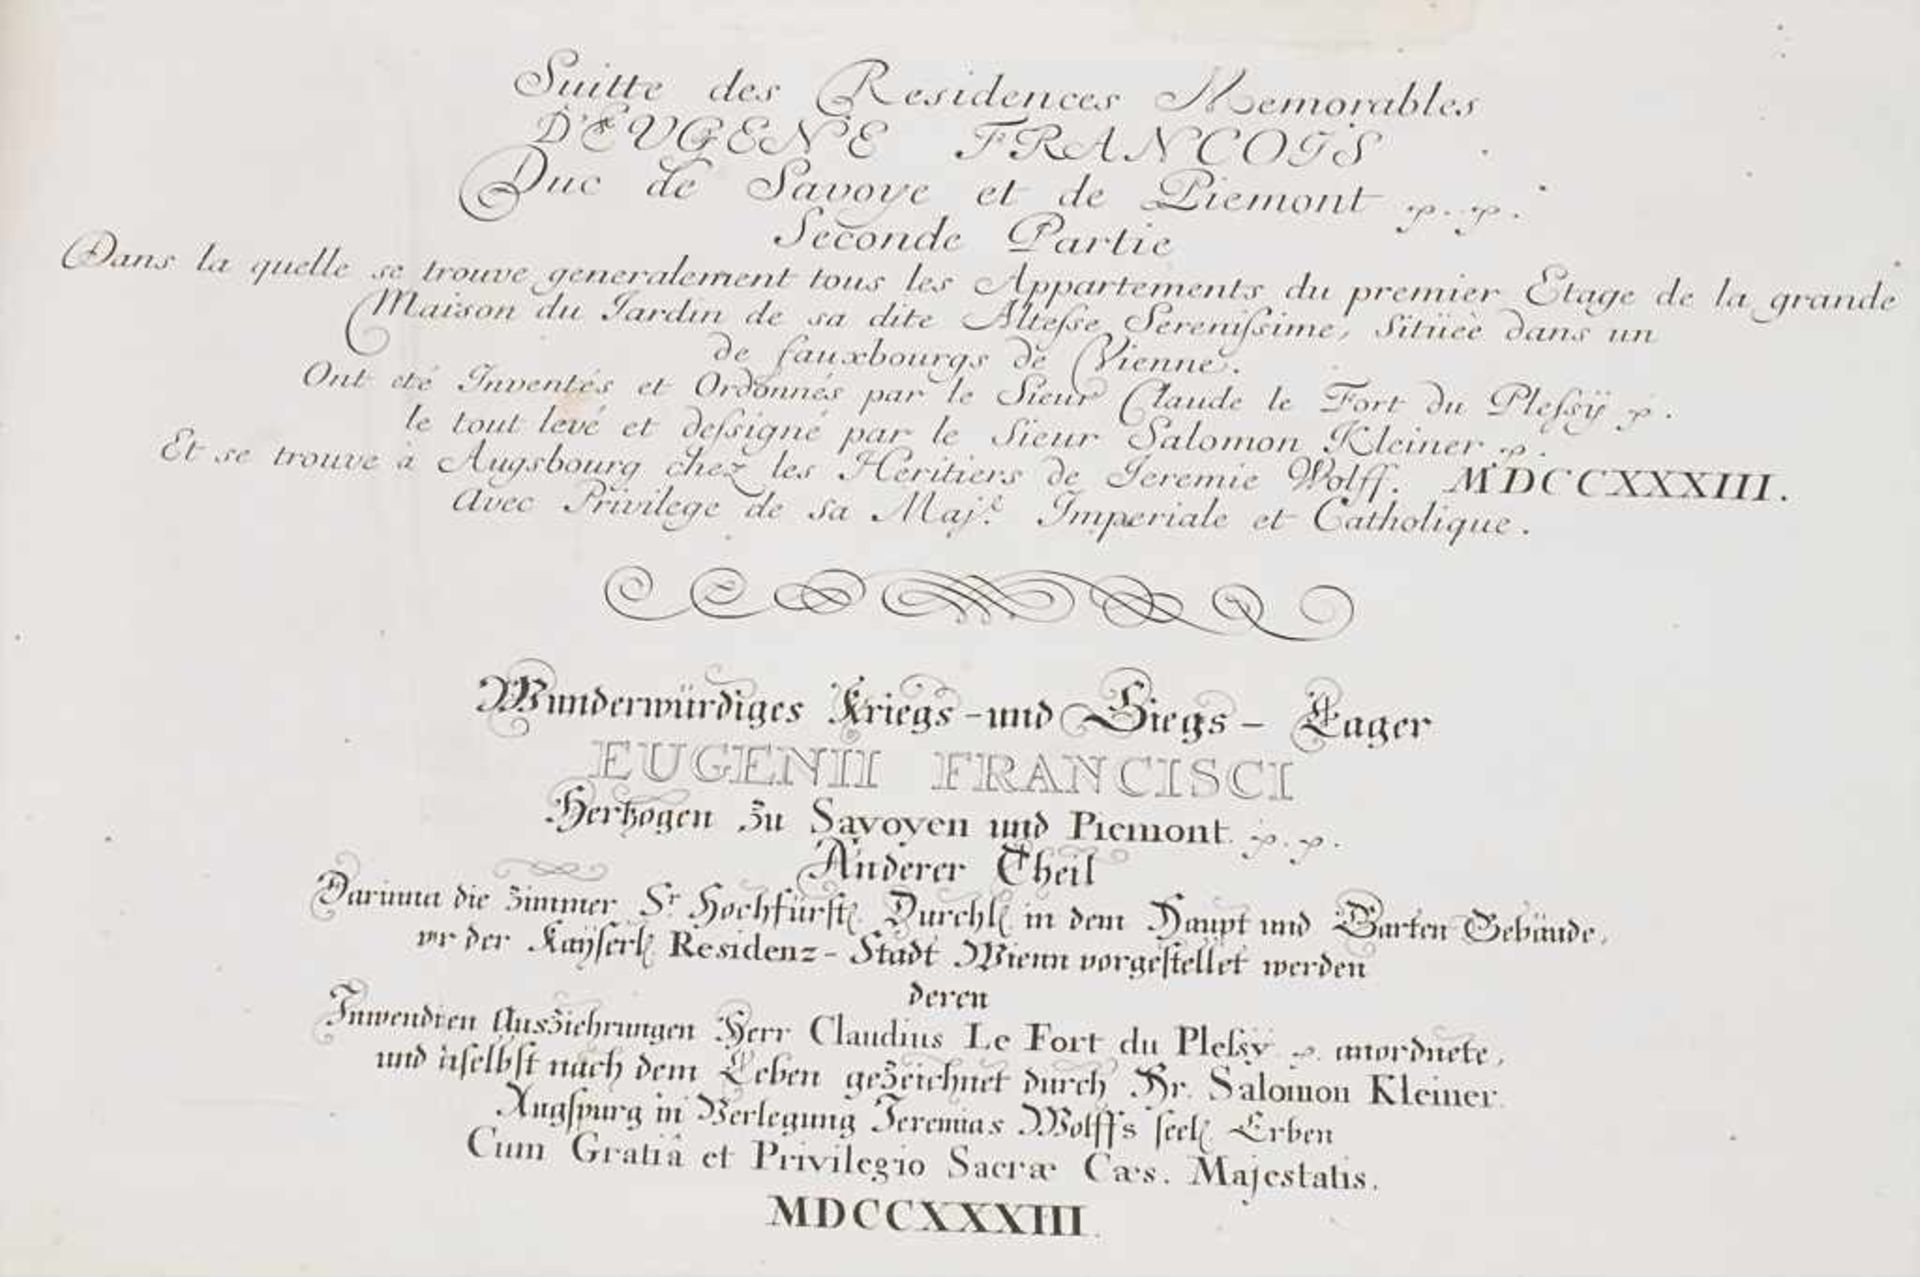 Suitte des Residences Memorables
D'EUGENE FRANCOIS
Duc de Savoye et de Piemont p. p.
Seconde Partie
Dans la quelle se trouve generalement tous les Appartements du premier Etage de la grande
Maison du Jardin de sa dite Altesse Serenissime, Sitüeè dans un
de fauxbourgs de Vienne.
Ont eté Inventés et Ordonnés par le Sieur Claude le Fort du Plessÿ p.
le tout levé et dessigné par le Sieur Salomon Kleiner p.
Et se trouve à Augsbourg chez les Heritiers de Jeremie Wolff. MDCCXXXIII.
Avec Privilege de sa Maj.e Imperiale et Catholique.
Wunderwürdiges Kriegs-und Siegs-Lager
EUGENII FRANCISCI
Hertzogen zu Savoyen und Piemont p. p.
Anderer Theil
Darinna die Zimmer Sr Hochfürstl. Durchl. in dem Haupt und Garten Gebäude,
vor der Kaÿserl. Residenz-Stadt Wienn vorgestellet werden
deren
Inwendien Ausziehrungen Herr Claudius Le Fort du Plessy p. anordnete,
und aselbst nach dem Leben gezeichnet durch Hr. Salomon Kleiner.
Augspurg in Verlegung Jeremias Wolffs seel. Erben
Cum Gratiâ et Privilegio Sacræ Cæs. Majestatis.
MDCCXXXIII.